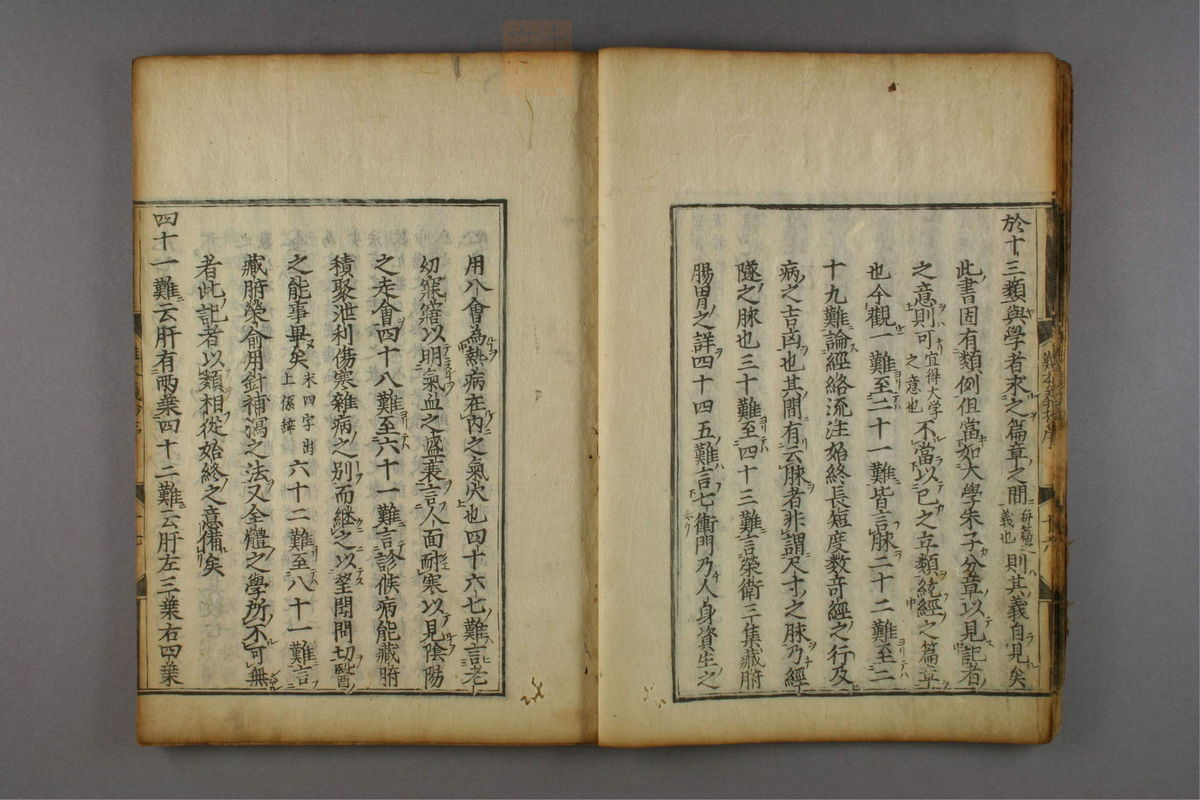 於十三類與學者求之篇章之間每篇之義也則其義自見矣
此書固有類例但當如大學朱子分章以見記者
之意則可宜得大学之意也不當以已之立類統經之篇章
也今觀一難至二十一難皆言脉二十二難至二
十九難論經絡流注始終長短度数竒經之行及
病之吉凶也其間有云脉者非謂尺寸之脉乃經
隧之脉也三十難至四十三難言榮衛三焦藏腑
腸胃之詳四十四五難言七衝門乃人身資生之
用八會為熱病在內之氣穴也四十六七難言老
幼寤寐以明氣血之盛衰言人面耐寒以見陰陽
之走會四十八難至六十一難言診候病能藏腑
積聚泄利傷寒雜病之别而継之以望聞問切醫
之能事畢矣末四字出上係辞六十二難至八十一難言
藏腑榮俞用針補瀉之法又全體之學所不可無
者此記者以類相從始終之意備矣
四十一難云肝有兩葉四十二難云肝左三葉右四葉